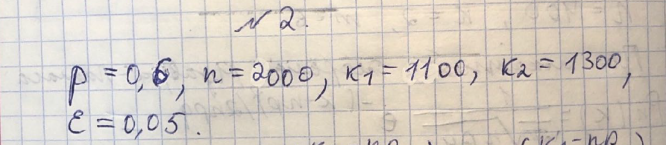 № 2.
p = 0,6, n = 2000, к₁ = 1100, к₂ = 1300,
ε = 0,05.